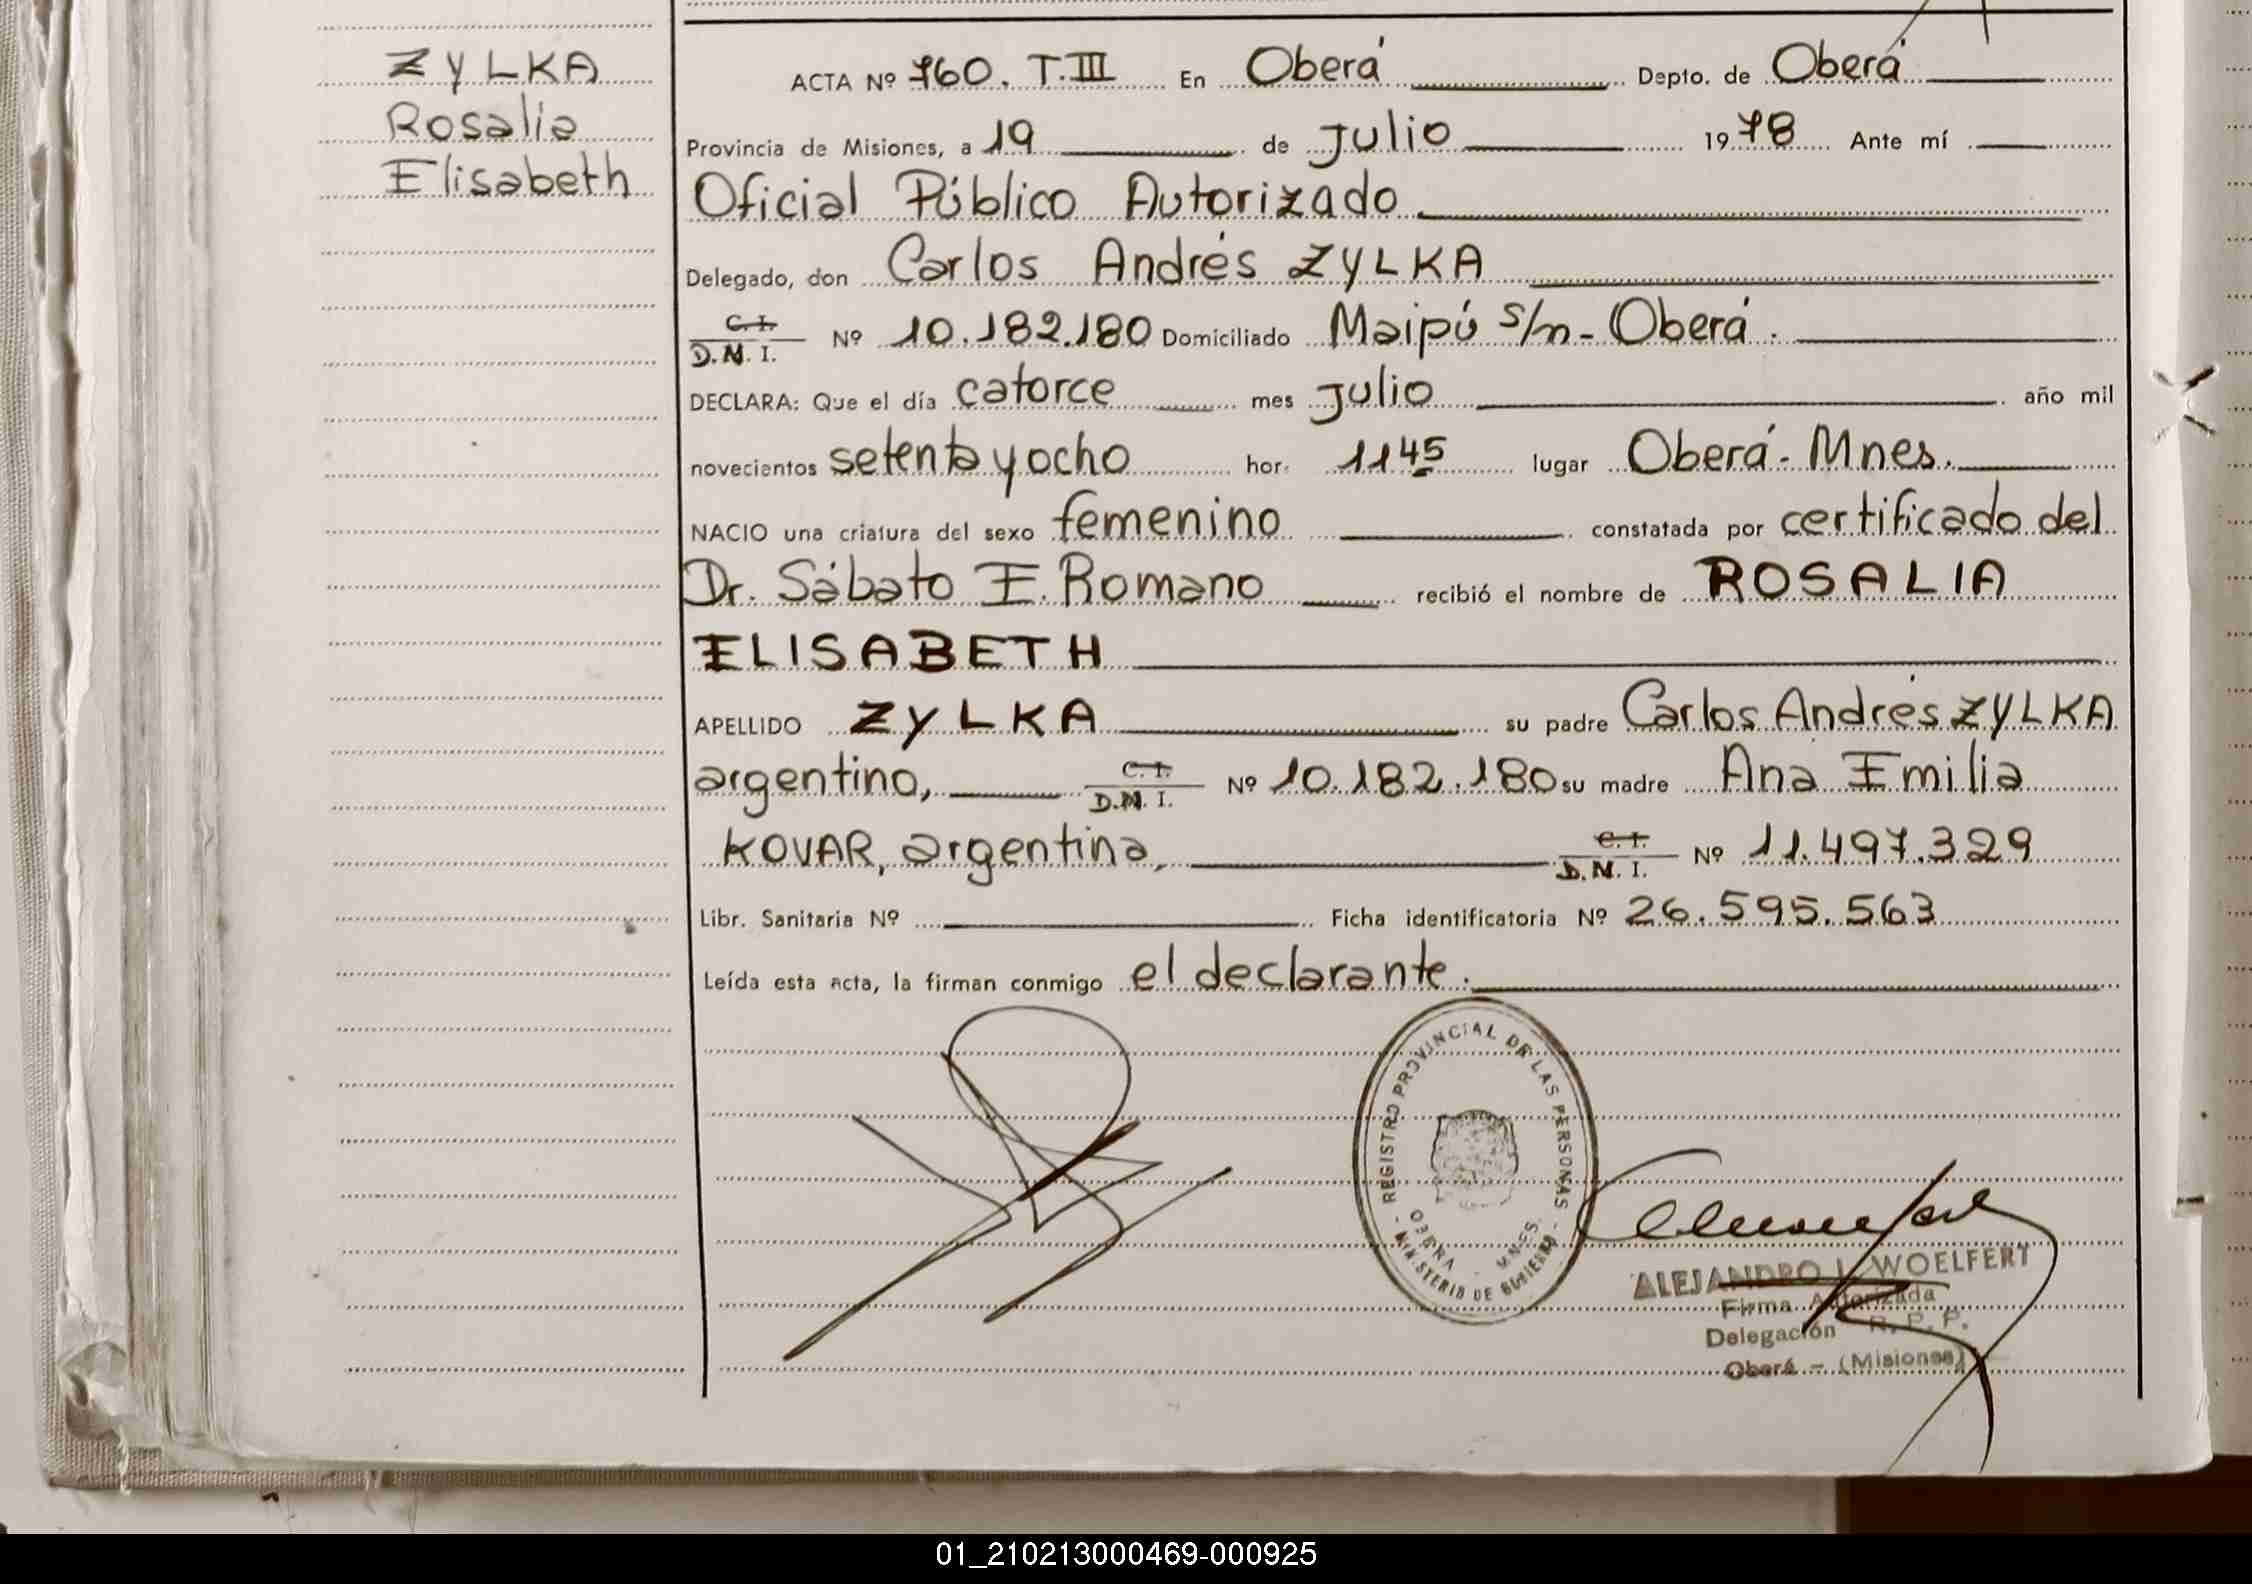 ZYLKA
Rosalia
Elisabeth
ACTA Nº 760. T.III En Oberá Depto. de Oberá
Provincia de Misiones, a 19 de julio 1978 Ante mí
Oficial Público Autorizado
Delegado, don Carlos Andrés ZYLKA
C. I.
D.N. I. Nº 10.182.180 Domiciliado Maipú s/n - Oberá.
DECLARA: Que el día catorce mes julio año mil
novecientos setenta y ocho hor. 1145 lugar Oberá - Mnes.
NACIO una criatura del sexo femenino constatada por certificado del
Dr. Sábato E. Romano recibió el nombre de ROSALIA
ELISABETH
APELLIDO ZYLKA su padre Carlos Andrés ZYLKA
argentino, C. I. D.N. I. Nº 10.182.180 su madre Ana Emilia
KOVAR, argentina, C. I. D.N. I. Nº 11.497.329
Libr. Sanitaria Nº Ficha identificatoria Nº 26.595.563
Leída esta acta, la firman conmigo el declarante.
- REGISTRO PROVINCIAL DE LAS PERSONAS -
MINISTERIO DE GOBIERNO
OBERA - MNES.
ALEJANDRO L. WOELFERT
Firma Autorizada
Delegación R. P. P.
Oberá - (Misiones)
01_210213000469-000925